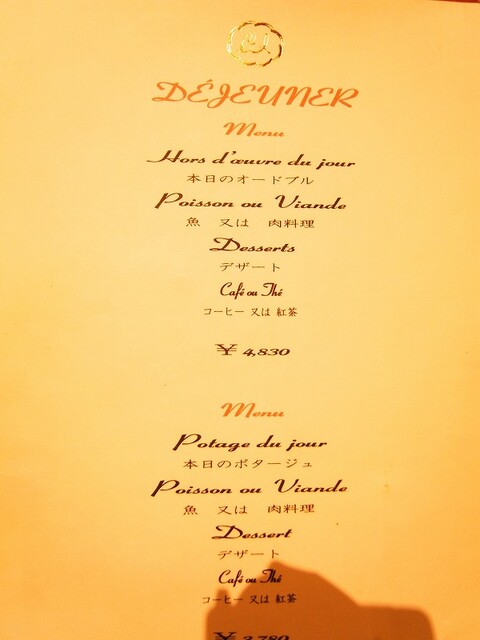 DÉJEUNER
Menu
Hors d'œuvre du jour
本日のオードブル
Poisson ou Viande
魚 又は 肉料理
Desserts
デザート
Café ou Thé
コーヒー 又は 紅茶
¥ 4,830
Menu
Potage du jour
本日のポタージュ
Poisson ou Viande
魚 又は 肉料理
Dessert
デザート
Café ou Thé
コーヒー 又は 紅茶
¥ 3,780